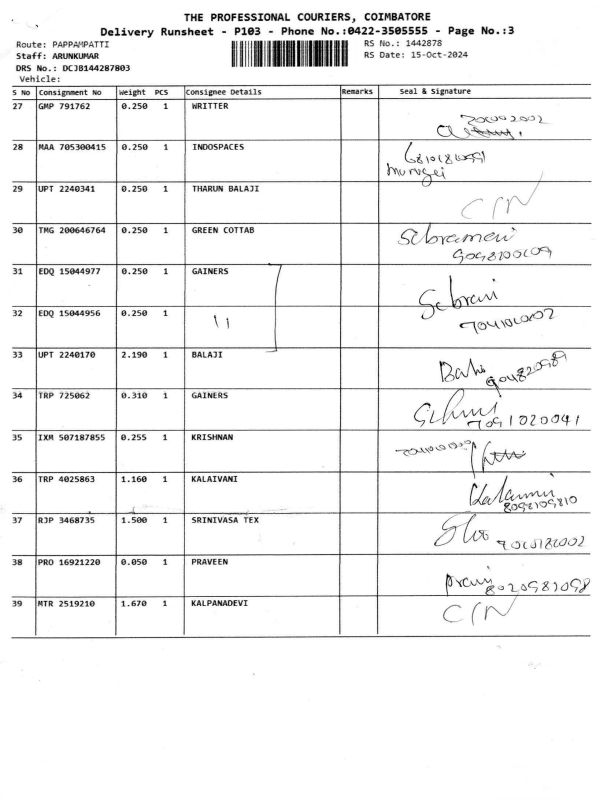 THE PROFESSIONAL COURIERS, COIMBATORE
Delivery Runsheet - P103 - Phone No.:0422-3505555 - Page No.:3
Route: PAPPAMPATTI RS No.: 1442878
Staff: ARUNKUMAR RS Date: 15-Oct-2024
DRS No.: DCJB144287803
Vehicle:
S No Consignment No Weight PCS Consignee Details Remarks Seal & Signature
27 GMP 791762 0.250 1 WRITTER
28 MAA 705300415 0.250 1 INDOSPACES
29 UPT 2240341 0.250 1 THARUN BALAJI
C/N
30 TMG 200646764 0.250 1 GREEN COTTAB
31 EDQ 15044977 0.250 1 GAINERS
32 EDQ 15044956 0.250 1 11
33 UPT 2240170 2.190 1 BALAJI
34 TRP 725062 0.310 1 GAINERS
7091020041
35 IXM 507187855 0.255 1 KRISHNAN
36 TRP 4025863 1.160 1 KALAIVANI
37 RJP 3468735 1.500 1 SRINIVASA TEX
38 PRO 16921220 0.050 1 PRAVEEN
39 MTR 2519210 1.670 1 KALPANADEVI
C/N